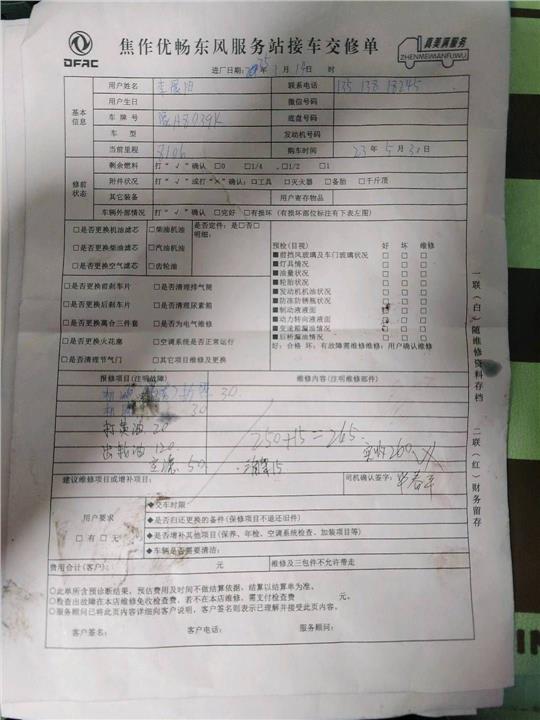 DFAC
焦作优畅东风服务站接车交修单
真美满服务
ZHENMEIMANFUWU
进厂日期: 25年1月19日 时
基本信息
用户姓名 联系电话 135 138 18245
用户生日 微信号码
车牌号 豫A8039K 底盘号码
车型 发动机号码
当前里程 8106 购车时间 23年5月30日
修前状态
剩余燃料 打“√”确认 □0 □1/4 □1/2 □1
附件状况 打“√”或打“×”确认: □工具 □灭火器 □备胎 □千斤顶
其它装备 用户寄存物品
车辆外部情况 打“√”确认 □完好 □有损坏（有损坏部位标注有下表左图）
□是否更换机油滤芯 □柴油机油 是否定件: □是□否
□是否更换柴油滤芯 □汽油机油 明细:
□是否更换空气滤芯 □齿轮油
□是否更换前刹车片 □是否清理排气筒
□是否更换后刹车片 □是否清理尿素箱
□是否更换离合三件套 □是否为电气维修
□是否更换火花塞 □空调系统是否正常运行
□是否清理节气门 □其它项目维修及更换
预检(目视) 好 坏 维修
■前挡风玻璃及车门玻璃状况 □ □ □
■灯具情况 □ □ □
■油量状况 □ □ □
■轮胎状况 □ □ □
■发动机机油状况 □ □ □
■防冻防锈瓶状况 □ □ □
■制动液液面 □ □ □
■动力转向液液面 □ □ □
■变速箱漏油情况 □ □ □
■后桥漏油情况 □ □ □
好: 合格 坏: 有故障需维修维修: 用户确认维修
报修项目(注明故障) 维修内容(注明维修部件)
30
30
打黄油 20
齿轮油 120
空滤 50
250+15=265
15
实收260
建议维修项目或增补项目: 司机确认签字:
用户要求
□有□无
◆交车时限:
◆是否归还更换的备件(保修项目不退还旧件)
◆是否增补其他项目(保养、年检、空调系统检查、加装项目等)
◆车辆是否需要清洁:
费用合计(客户): 元 维修及三包件不允许带走
○此单所含预诊断结果，预估费用及时间不做结算依据，结算以结算单为准。
○检查出故障在本店维修免收检查费，若不在本店维修，需支付检查费 元。
○服务顾问已将此页内容详细向客户说明，客户签名则表示已理解并接受此页内容。
客户签名: 客户电话: 服务顾问:
一联（白）随维修资料存档
二联（红）财务留存